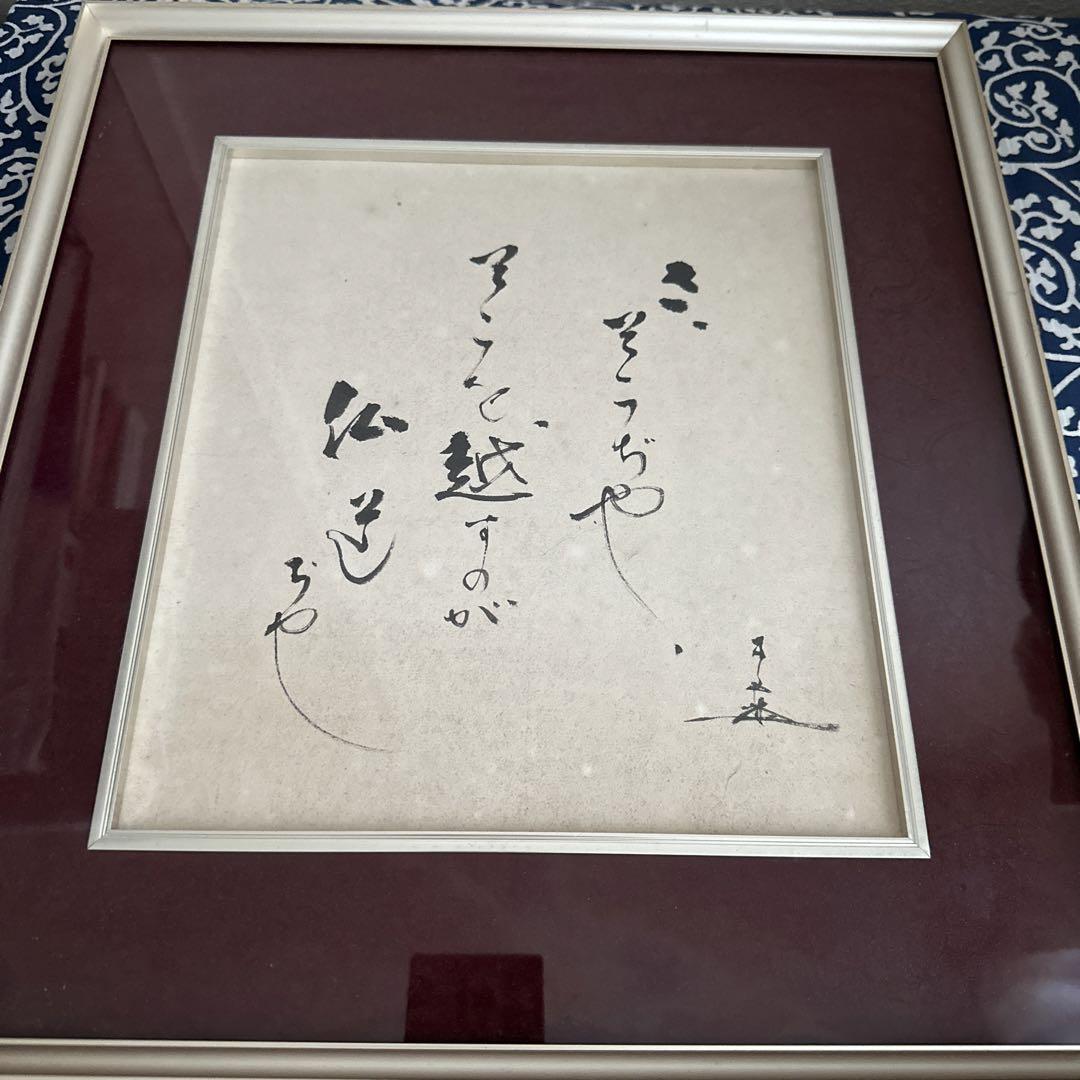 さ、
そこぢや
そこを、越すのが
仏道
ぢや